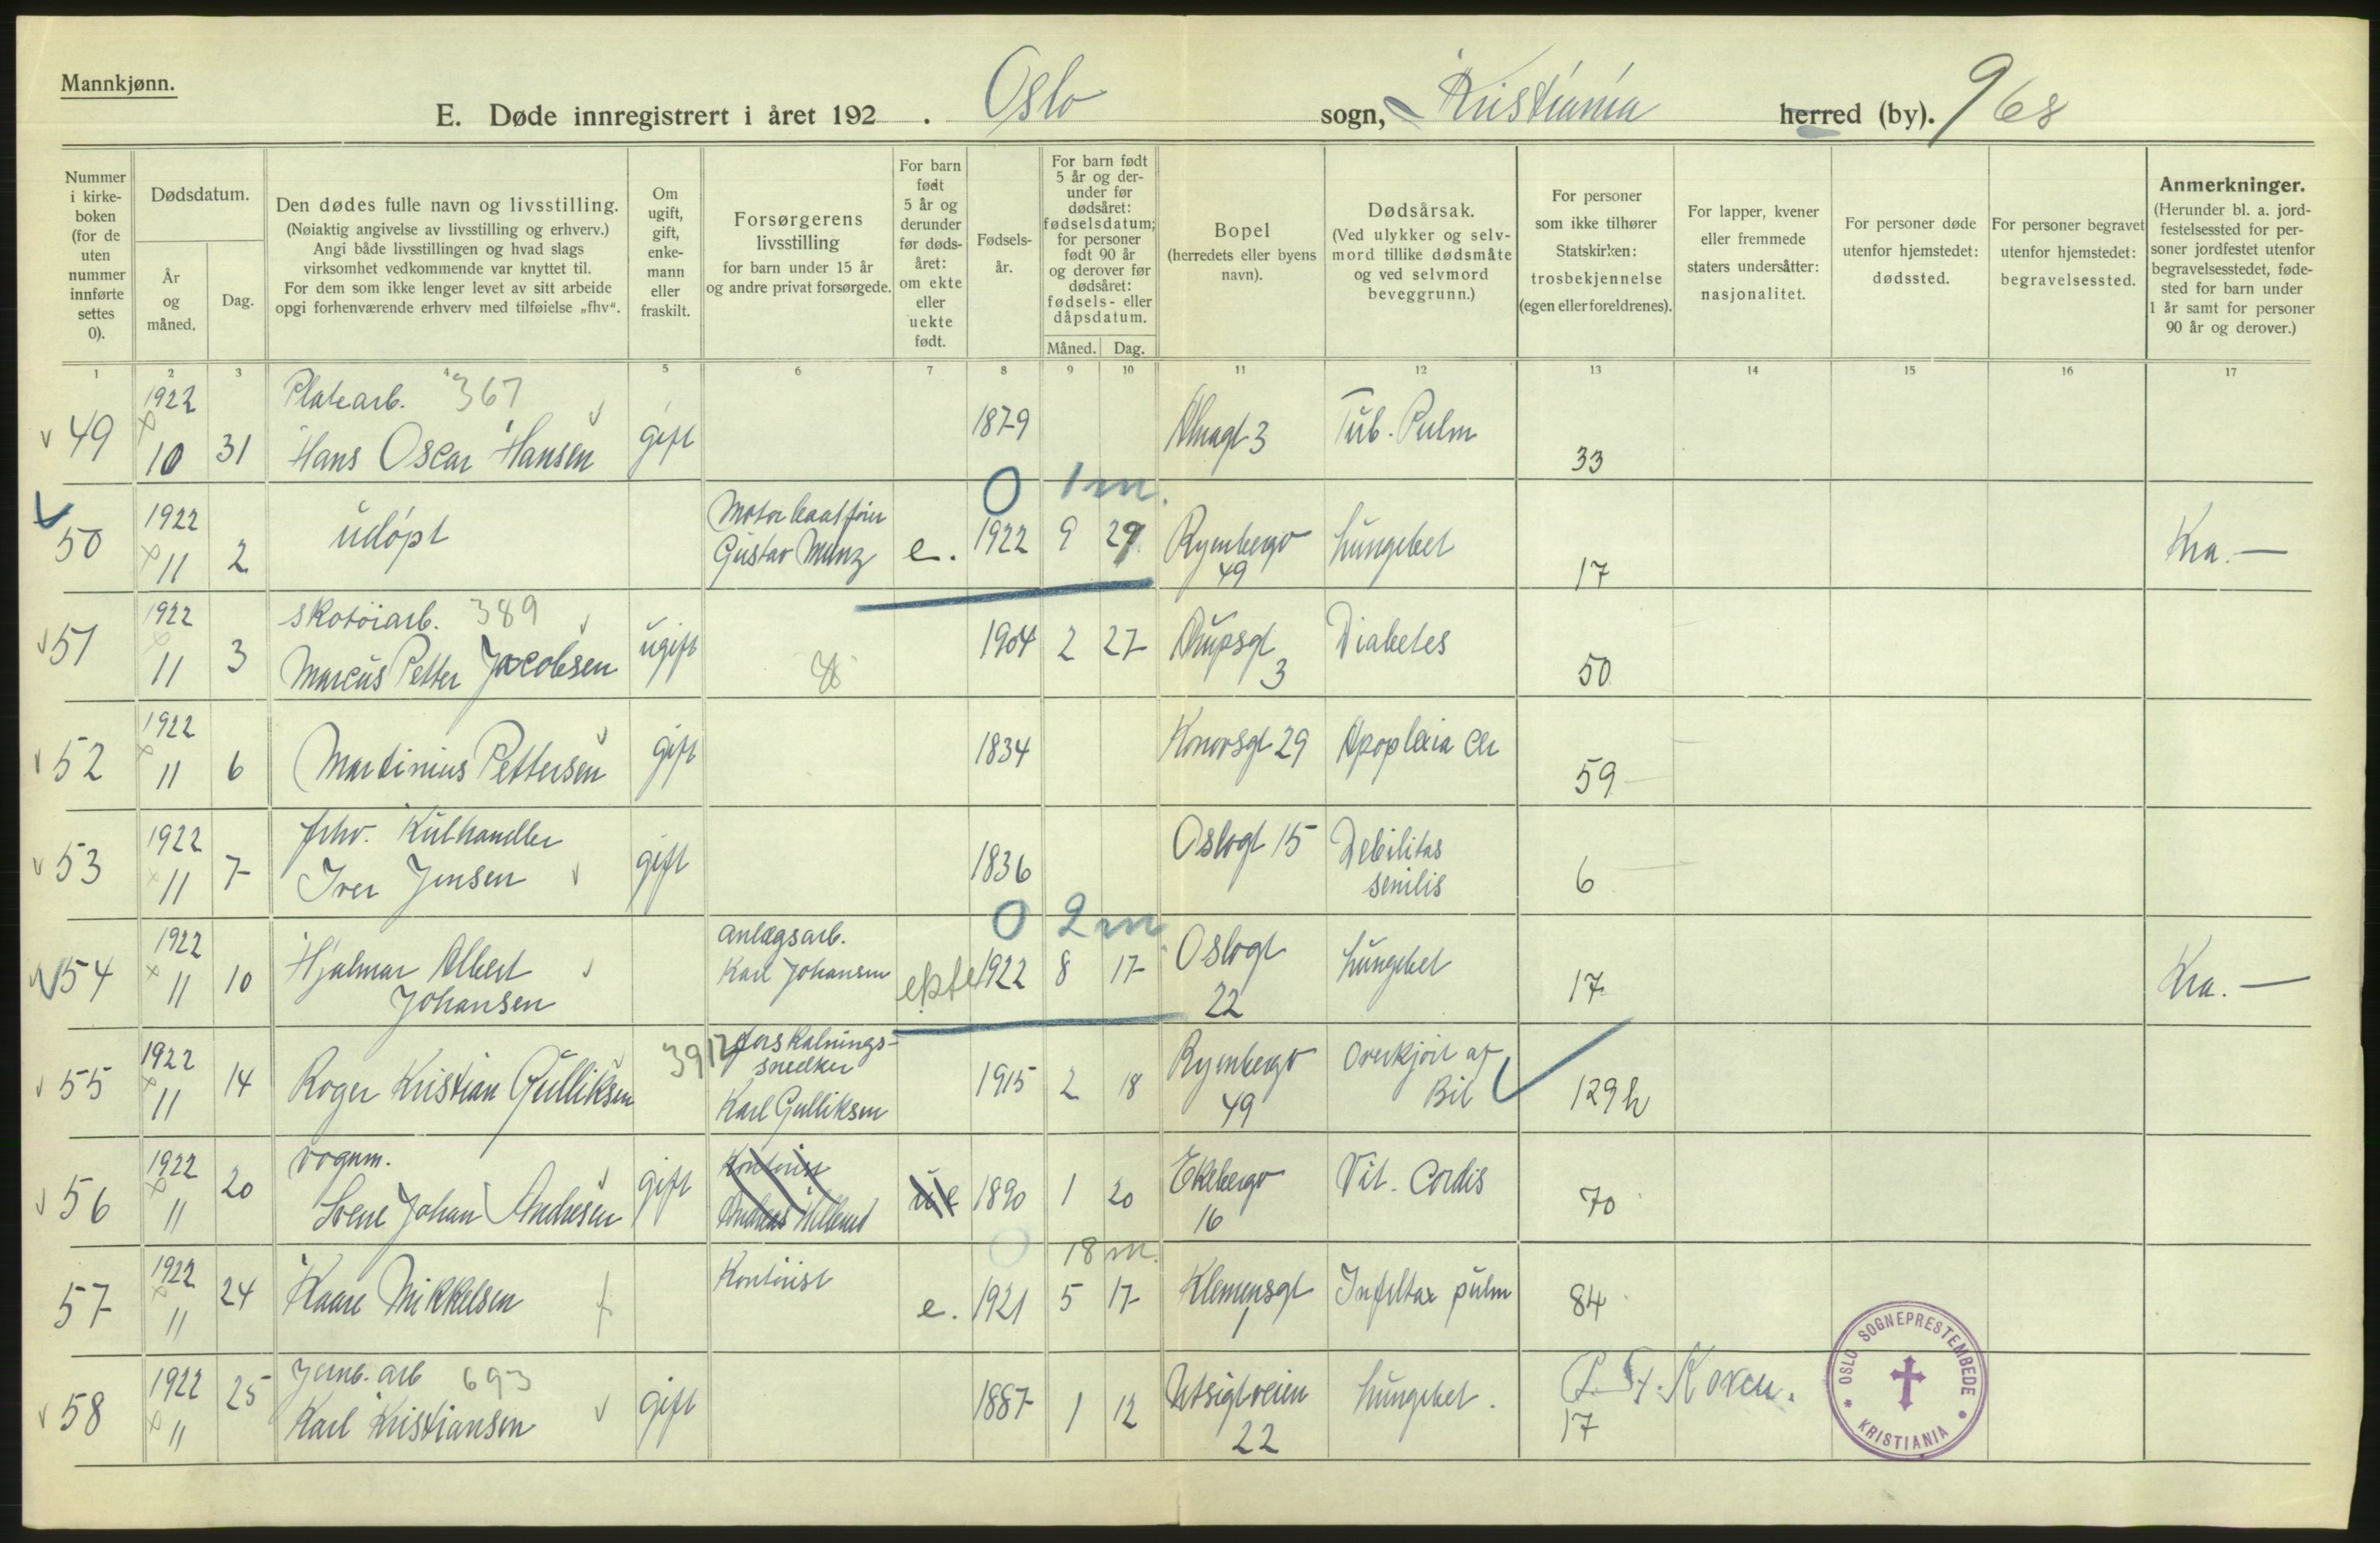 Mannkjønn.
E. Døde innregistrert i året 192 . Oslo sogn, Kristiania herred (by). 9/68
Nummer i kirke- boken (for de uten nummer innførte settes 0).
Dødsdatum.
År og måned.
Dag.
Den dødes fulle navn og livsstilling.
(Nøiaktig angivelse av livsstilling og erhverv.)
Angi både livsstillingen og hvad slags
virksomhet vedkommende var knyttet til.
For dem som ikke lenger levet av sitt arbeide
opgi forhenværende erhverv med tilføielse „fhv“.
Om ugift, gift, enke- mann eller fraskilt.
Forsørgerens livsstilling
for barn under 15 år
og andre privat forsørgede.
For barn født 5 år og derunder før døds- året: om ekte eller uekte født.
Fødsels- år.
For barn født 5 år og der- under før dødsåret: fødselsdatum; for personer født 90 år og derover før dødsåret: fødsels- eller dåpsdatum.
Måned. Dag.
Bopel
(herredets eller byens navn).
Dødsårsak.
(Ved ulykker og selv- mord tillike dødsmåte og ved selvmord beveggrunn.)
For personer som ikke tilhører Statskirken: trosbekjennelse (egen eller foreldrenes).
For lapper, kvener eller fremmede staters undersåtter: nasjonalitet.
For personer døde utenfor hjemstedet: dødssted.
For personer begravet utenfor hjemstedet: begravelsessted.
Anmerkninger.
(Herunder bl. a. jord- festelsessted for per- soner jordfestet utenfor begravelsesstedet, føde- sted for barn under 1 år samt for personer 90 år og derover.)
1 2 3 4 5 6 7 8 9 10 11 12 13 14 15 16 17
1922 Platearb. 367
49 10 31 Hans Oscar Hansen gift 1879 3 Tub. Pulm 33
0 1 m.
1922 Motorbaatfører
50 11 2 udøpt Gustav Munz e. 1922 9 29 Rymbergv 49 Lungebet 17 Kra. —
1922 skotøiarb. 389
51 11 3 Marcus Petter Jacobsen ugift 1904 2 27 3 Diabetes 50
1922
52 11 6 Martinius Pettersen gift 1834 Konowsgt 29 Apoplexia 59
1922 fhv. Kulhandler
53 11 7 Iver Jensen gift 1836 Oslogt 15 Debilitas senilis 6
0 2 m
1922 anlægsarb.
54 11 10 Hjalmar Albert Johansen Karl Johansen ekte 1922 8 17 Oslogt 22 Lungebet 17 Kra. —
1922 3912 forskalnings-
snedker
55 11 14 Roger Kristian Gulliksen Karl Gulliksen 1915 2 18 Rymbergv 49 Overkjørt af Bil 129h
1922 vognm.
56 11 20 Johan Andresen gift 1890 1 20 Ekebergv 16 Vit. Cordis 70
18 m.
1922 Kontorist
57 11 24 Kaare Mikkelsen e. 1921 5 17 Klemensgt 1 pulm 84
1922 Jernb. arb 693
58 11 25 Karl Kristiansen gift 1887 1 12 Utsigtveien 22 Lungebet. 17
OSLO SOGNEPRESTEMBEDE * KRISTIANIA *